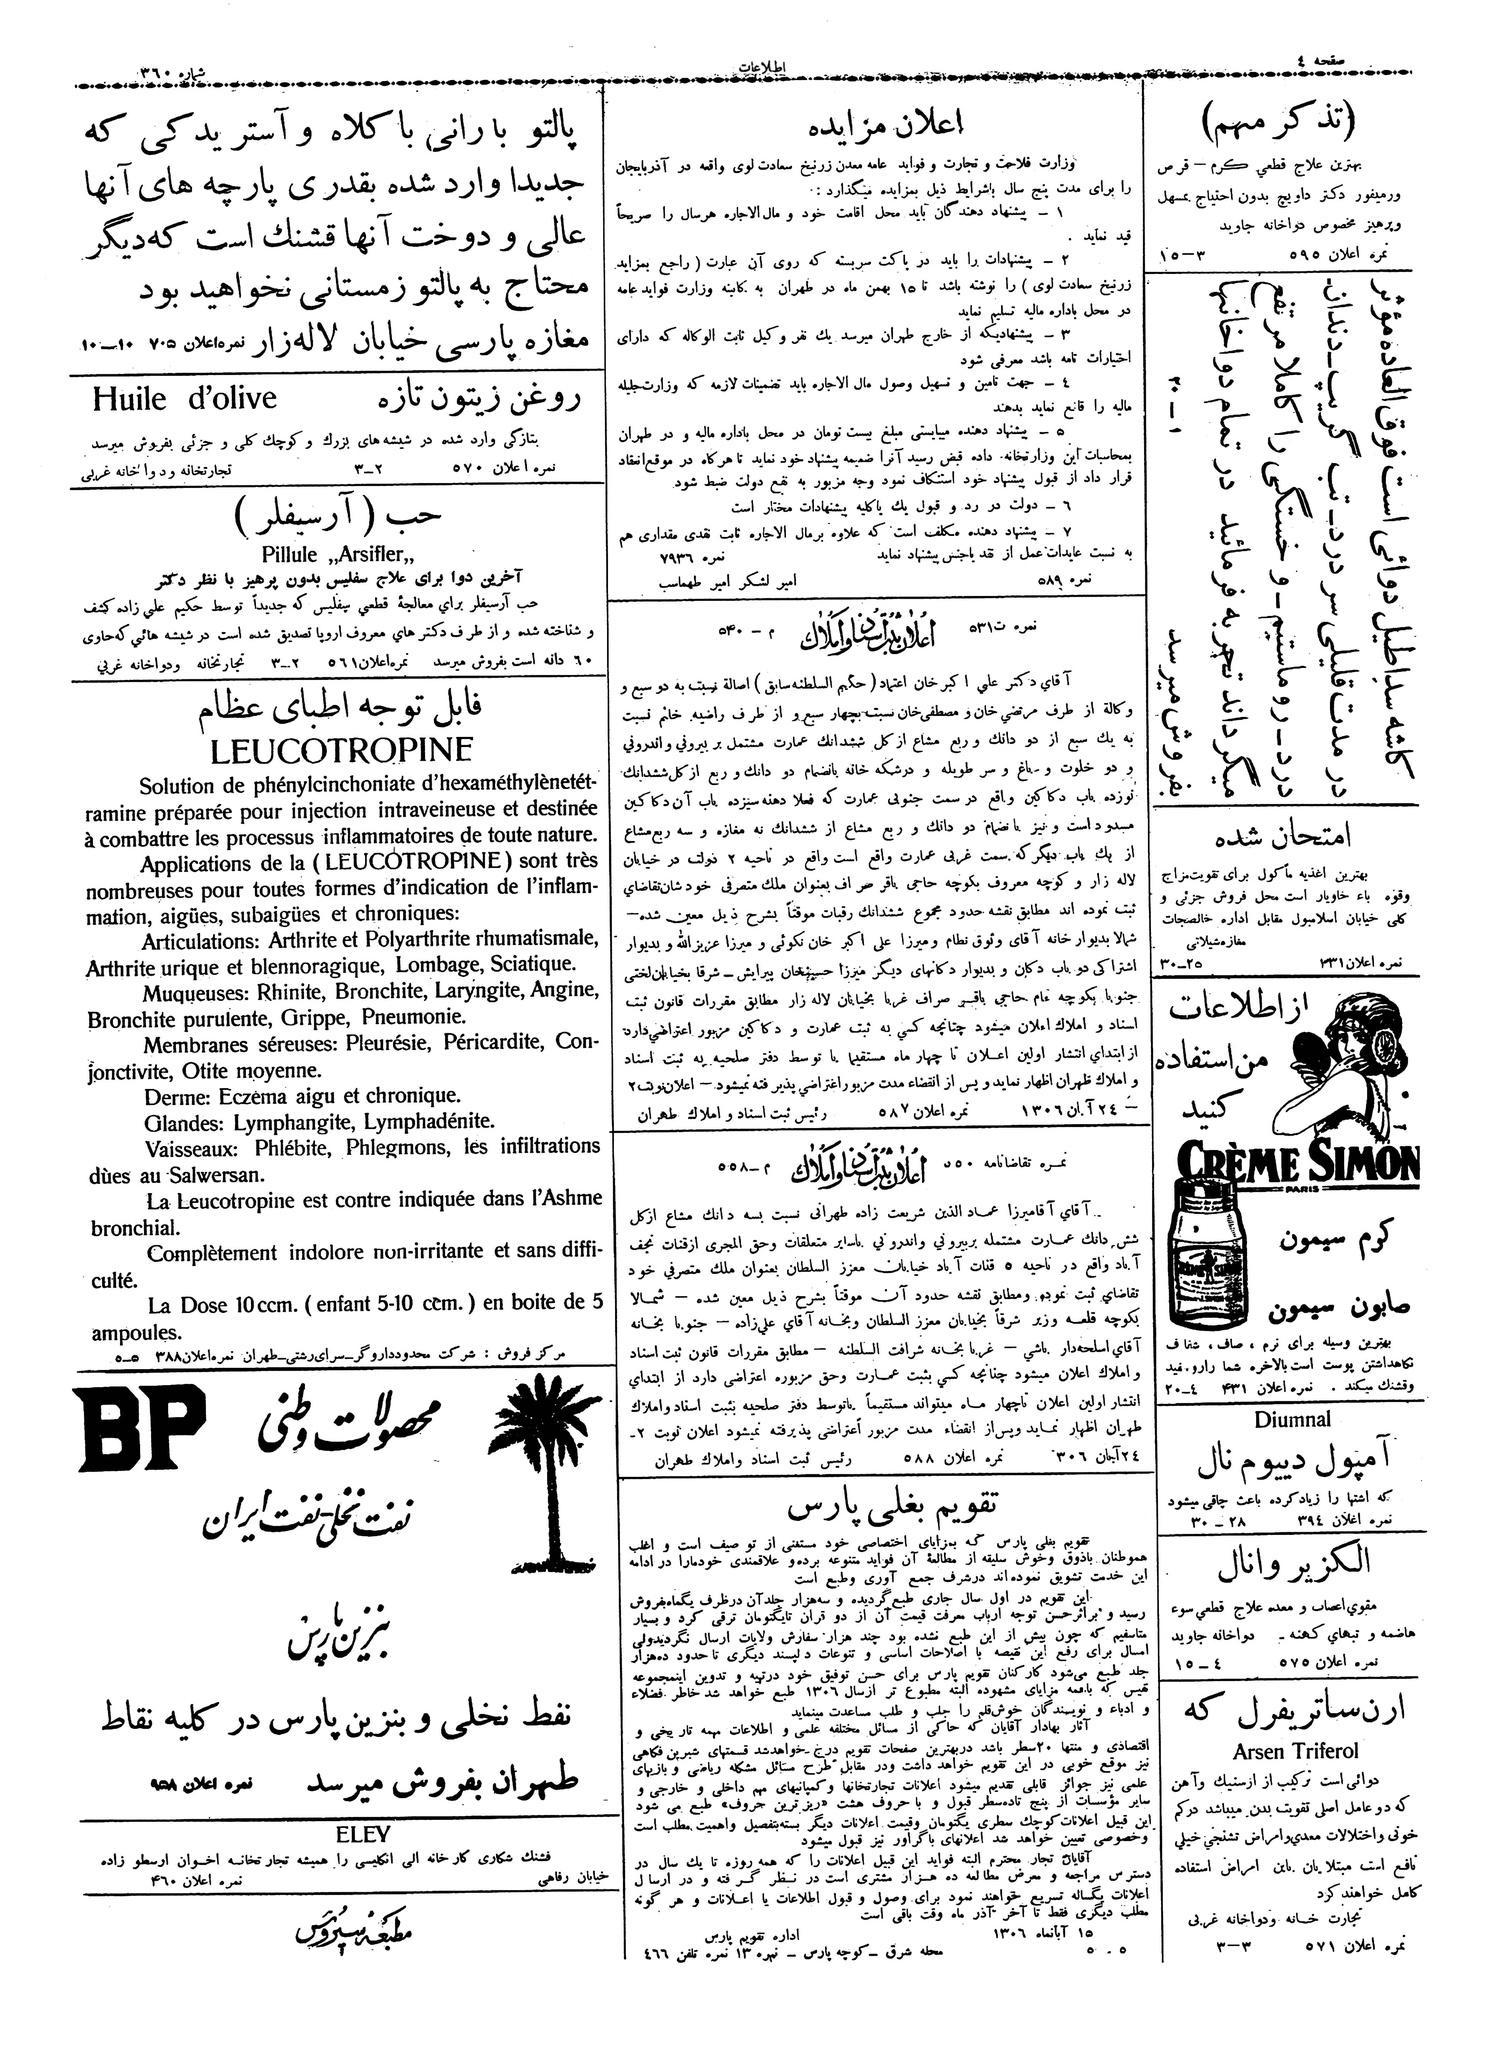 صفحه ٤
اطلاعات
شماره ٣٦٠
(تذکر مهم)
بهترین علاج قطعی کرم – قرص
ورمیفور دکتر داویج بدون احتیاج بمسهل
وپرهیز مخصوص دواخانه جاوید
نمره اعلان ٥٩٥ ٣–١٥
کاشه سداطیل دوائی است فوق العاده مؤثر
در مدت قلیلی سر درد – تب گریپ – دندان
درد – روماتیسم – و خستگی را کاملا مرتفع
میگرداند تجربه فرمائید در تمام دواخانها
بفروش میرسد ١–٣٠
امتحان شده
بهترین اغذیه مأکول برای تقویت مزاج
وقوه باء خاویار است محل فروش جزئی و
کلی خیابان اسلامبول مقابل اداره خالصجات
مغازه شیلاتی
نمره اعلان ٣٣١ ٢٥–٣٠
از اطلاعات
من استفاده
کنید
CRÈME SIMON
PARIS
کرم سیمون
صابون سیمون
بهترین وسیله برای نرم ، صاف ، شفاف
نگاهداشتن پوست است بالاخره شما را رو. فید
وقشنك میکند . نمره اعلان ٤٣١ ٤–٢٠
Diumnal
آمپول دییوم نال
که اشتها را زیاد کرده باعث چاقی میشود
نمره اعلان ٣٩٤ ٢٨ – ٣٠
الکزیر وانال
مقوی اعصاب و معده علاج قطعی سوء
هاضمه و تبهای کهنه – دواخانه جاوید
نمره اعلان ٥٧٥ ٤–١٥
ارن ساتریفرل که
Arsen Triferol
دوائی است ترکیب از ارسنیك وآهن
که دو عامل اصلی تقویت بدن میباشد درکم
خونی واختلالات معدی وامراض تشنجی خیلی
نافع است مبتلایان باین امراض استفاده
کامل خواهند کرد
تجارت خانه ودواخانه غربی
نمره اعلان ٥٧١ ٣–٣
اعلان مزایده
وزارت فلاحت و تجارت و فواید عامه معدن زرنیخ سعادت لوی واقعه در آذربایجان
را برای مدت پنج سال باشرایط ذیل بمزایده میگذارد :
١ – پیشنهاد دهندگان باید محل اقامت خود و مال الاجاره هرسال را صریحاً
قید نماید .
٢ – پیشنهادات را باید در پاکت سربسته که روی آن عبارت ( راجع بمزاید
زرنیخ سعادت لوی ) را نوشته باشد تا ١٥ بهمن ماه در طهران به کابینه وزارت فواید عامه
در محل باداره مالیه تسلیم نماید
٣ – پیشنهادیکه از خارج طهران میرسد یك نفر وکیل ثابت الوکاله که دارای
اختیارات تامه باشد معرفی شود
٤ – جهت تامین و تسهیل وصول مال الاجاره باید تضمینات لازمه که وزارت جلیله
مالیه را قانع نماید بدهند
٥ – پیشنهاد دهنده میبایستی مبلغ بیست تومان در محل باداره مالیه و در طهران
بمحاسبات این وزارتخانه داده قبض رسید آنرا ضمیمه پیشنهاد خود نماید تا هرکاه در موقع انعقاد
قرار داد از قبول پیشنهاد خود استنکاف نمود وجه مزبور به نفع دولت ضبط شود.
٦ – دولت در رد و قبول یك یاکلیه پیشنهادات مختار است
٧ – پیشنهاد دهنده مکلف است که علاوه برمال الاجاره ثابت نقدی مقداری هم
به نسبت عایدات عمل از نقد یاجنس پیشنهاد نماید نمره ٧٩٣٦
نمره ٥٨٩ امیر لشکر امیر طهماسب
نمره ت ٥٣١ اعلان ثبت اسناد و املاك م – ٥٤٠
آقای دکتر علی اکبر خان اعتماد ( حکیم السلطنه سابق ) اصالة نسبت به دو سبع و
وکالة از طرف مرتضی خان و مصطفی خان نسبت بچهار سبع و از طرف راضیه خانم نسبت
به یك سبع از دو دانك و ربع مشاع از کل ششدانك عمارت مشتمل بر بیرونی واندرونی
و دو خلوت و باغ و سر طویله و درشکه خانه بانضمام دو دانك و ربع از کل ششدانك
نوزده باب دکاکین واقع در سمت جنوبی عمارت که فعلا دهنه سیزده باب آن دکاکین
مسدود است و نیز با نضمام دو دانك و ربع مشاع از ششدانك نه مغازه و سه ربع مشاع
از یك باب دیگر که سمت غربی عمارت واقع است واقع در ناحیه ٢ دولت در خیابان
لاله زار و کوچه معروف بکوچه حاجی باقر صراف بعنوان ملك متصرفی خودشان تقاضای
ثبت نموده اند مطابق نقشه حدود مجموع ششدانك رقبات موقتاً بشرح ذیل معین شده –
شمالا بدیوار خانه آقای وثوق نظام ومیرزا علی اکبر خان نکوئی و میرزا عزیزالله و بدیوار
اشتراکی دو باب دکان و بدیوار دکانهای دیگر میرزا حسینخان پیرایش – شرقا بخیابان لختی
جنوبا بکوچه عام حاجی باقر صراف غربا بخیابان لاله زار مطابق مقررات قانون ثبت
اسناد و املاك اعلان میشود چنانچه کسی به ثبت عمارت و دکاکین مزبور اعتراضی دارد
از ابتدای انتشار اولین اعلان تا چهار ماه مستقیما یا توسط دفتر صلحیه به ثبت اسناد
و املاك طهران اظهار نماید و پس از انقضاء مدت مزبور اعتراضی پذیرفته نمیشود – اعلان نوبت ٢
– ٢٤ آبان ١٣٠٦ نمره اعلان ٥٨٧ رئیس ثبت اسناد و املاك طهران
نمره تقاضانامه ٥٥٠ اعلان ثبت اسناد و املاك م–٥٥٨
آقای آقامیرزا عماد الدین شریعت زاده طهرانی نسبت بسه دانك مشاع از کل
شش دانك عمارت مشتمله بربیرونی واندرونی باسایر متعلقات وحق المجری ازقنات نجف
آباد واقع در ناحیه ٥ قنات آباد خیابان معزز السلطان بعنوان ملك متصرفی خود
تقاضای ثبت نموده ومطابق نقشه حدود آن موقتاً بشرح ذیل معین شده – شمالا
بکوچه قلعه وزیر شرقاً بخیابان معزز السلطان وبخانه آقای علی زاده – جنوبا بخانه
آقای اسلحه دار باشی – غربا بخانه شرافت السلطنه – مطابق مقررات قانون ثبت اسناد
و املاك اعلان میشود چنانچه کسی بثبت عمارت وحق مزبوره اعتراضی دارد از ابتدای
انتشار اولین اعلان تاچهار ماه میتواند مستقیماً یاتوسط دفتر صلحیه بثبت اسناد واملاك
طهران اظهار نماید وپس از انقضاء مدت مزبور اعتراضی پذیرفته نمیشود اعلان نوبت ٢–
٢٤ آبان ٣٠٦ نمره اعلان ٥٨٨ رئیس ثبت اسناد واملاك طهران
تقویم بغلی پارس
تقویم بغلی پارس که بمزایای اختصاصی خود مستغنی از تو صیف است و اغلب
هموطنان باذوق وخوش سلیقه از مطالعهٔ آن فواید متنوعه برده و علاقمندی خودمارا در ادامه
این خدمت تشویق نموده اند درشرف جمع آوری وطبع است
این تقویم در اول سال جاری طبع گردیده و سه هزار جلدآن درظرف یکماه بفروش
رسید و براثرحسن توجه ارباب معرفت قیمت آن از دو قران تایکتومان ترقی کرد و بسیار
متاسفیم که چون بیش از این طبع نشده بود چند هزار سفارش ولایات ارسال نگردید ولی
امسال برای رفع این نقیصه با اصلاحات اساسی و تنوعات دلپسند دیگری تا حدود ده هزار
جلد طبع می شود کارکنان تقویم پارس برای حسن توفیق خود درتهیه و تدوین این مجموعه
نفیس که باهمه مزایای مشهوده البته مطبوع تر از سال ١٣٠٦ طبع خواهد شد خاطر فضلاء
و ادباء و نویسندگان خوش قلم را جلب و طلب مساعدت مینماید
آثار بهادار آقایان که حاکی از مسائل مختلفه علمی و اطلاعات مهمه تاریخی و
اقتصادی و منتها ٢٠سطر باشد دربهترین صفحات تقویم درج خواهدشد قسمتهای شیرین فکاهی
نیز موقع خوبی در این تقویم خواهد داشت ودر مقابل طرح مسائل مشکله ریاضی و بازیهای
علمی نیز جوائز قابلی تقدیم میشود اعلانات تجارتخانها وکمپانیهای مهم داخلی و خارجی و
سایر مؤسسات از پنج تاده سطر قبول و با حروف هشت «ریز ترین حروف» طبع می شود
این قبیل اعلانات کوچك سطری یکتومان وقیمت اعلانات دیگر بسته بتفصیل واهمیت مطلب است
وخصوصی تعیین خواهد شد اعلانهای باگراور نیز قبول میشود
آقایان تجار محترم البته فواید این قبیل اعلانات را که همه روزه تا یك سال در
دسترس مراجعه و معرض مطالعه ده هزار مشتری است در نظر گرفته و در ارسال
اعلانات یکساله تسریع خواهند نمود برای وصول و قبول اطلاعات یا اعلانات و هر گونه
مطلب دیگری فقط تا آخر آذر ماه وقت باقی است
١٥ آبانماه ١٣٠٦ اداره تقویم پارس
٥ – ٥ محله شرق – کوچه پارس – نمره ١٣ نمره تلفن ٤٦٦
پالتو بارانی با کلاه و آستر یدکی که
جدیدا وارد شده بقدری پارچه های آنها
عالی و دوخت آنها قشنك است که دیگر
محتاج به پالتو زمستانی نخواهید بود
مغازه پارسی خیابان لاله زار نمره اعلان ٧٠٥ ١٠–١٠
روغن زیتون تازه Huile d'olive
بتازگی وارد شده در شیشه های بزرك و کوچك کلی و جزئی بفروش میرسد
نمره اعلان ٥٧٠ ٢–٣ تجارتخانه ودواخانه غربی
حب ( آرسیفلر )
Pillule „Arsifler„
آخرین دوا برای علاج سفلیس بدون پرهیز با نظر دکتر
حب آرسیفلر برای معالجهٔ قطعی سیفلیس که جدیداً توسط حکیم علی زاده کشف
و شناخته شده و از طرف دکتر های معروف اروپا تصدیق شده است در شیشه هائی که حاوی
٦٠ دانه است بفروش میرسد نمره اعلان ٥٦١ ٢–٣ تجارتخانه ودواخانه غربی
قابل توجه اطبای عظام
LEUCOTROPINE
Solution de phénylcinchoniate d'hexaméthylènetét-
ramine préparée pour injection intraveineuse et destinée
à combattre les processus inflammatoires de toute nature.
Applications de la ( LEUCOTROPINE ) sont très
nombreuses pour toutes formes d'indication de l'inflam-
mation, aigües, subaigües et chroniques:
Articulations: Arthrite et Polyarthrite rhumatismale,
Arthrite urique et blennoragique, Lombage, Sciatique.
Muqueuses: Rhinite, Bronchite, Laryngite, Angine,
Bronchite purulente, Grippe, Pneumonie.
Membranes séreuses: Pleurésie, Péricardite, Con-
jonctivite, Otite moyenne.
Derme: Eczéma aigu et chronique.
Glandes: Lymphangite, Lymphadénite.
Vaisseaux: Phlébite, Phlegmons, les infiltrations
dùes au Salwersan.
La Leucotropine est contre indiquée dans l'Ashme
bronchial.
Complètement indolore non-irritante et sans diffi-
culté.
La Dose 10 ccm. ( enfant 5-10 ccm. ) en boite de 5
ampoules.
مرکز فروش : شرکت محدود داروگر – سرای رشتی – طهران نمره اعلان ٣٨٨ ٥–٥
BP
محصولات وطنی
نفت نخلی – نفت ایران
بنزین پارس
نفط نخلی و بنزین پارس در کلیه نقاط
طهران بفروش میرسد نمره اعلان ٩٥٨
ELEY
فشنك شکاری کارخانه الی انگلیسی را همیشه تجارتخانه اخوان ارسطو زاده
خیابان رفاهی نمره اعلان ٤٦٠
مطبعه سیروس